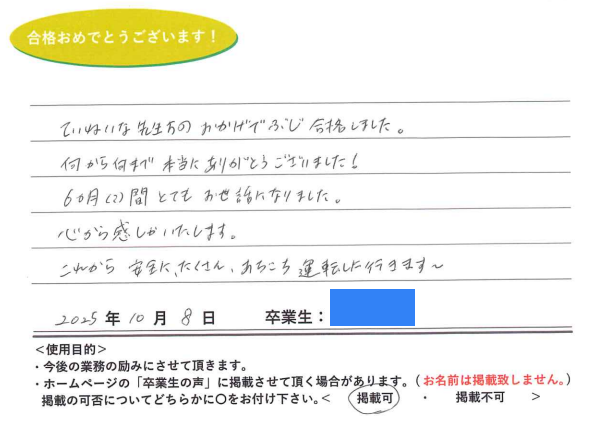 合格おめでとうございます！
ていねいな先生方のおかげでぶじ合格しました。
何から何まで本当にありがとうございました！
6カ月(?)間とてもお世話になりました。
心から感しゃいたします。
これから安全に、たくさん、あちこち運転しに行きます～
2025年10月8日 卒業生：
＜使用目的＞
・今後の業務の励みにさせて頂きます。
・ホームページの「卒業生の声」に掲載させて頂く場合があります。（お名前は掲載致しません。）
掲載の可否についてどちらかに〇をお付け下さい。＜ 掲載可 ・ 掲載不可 ＞